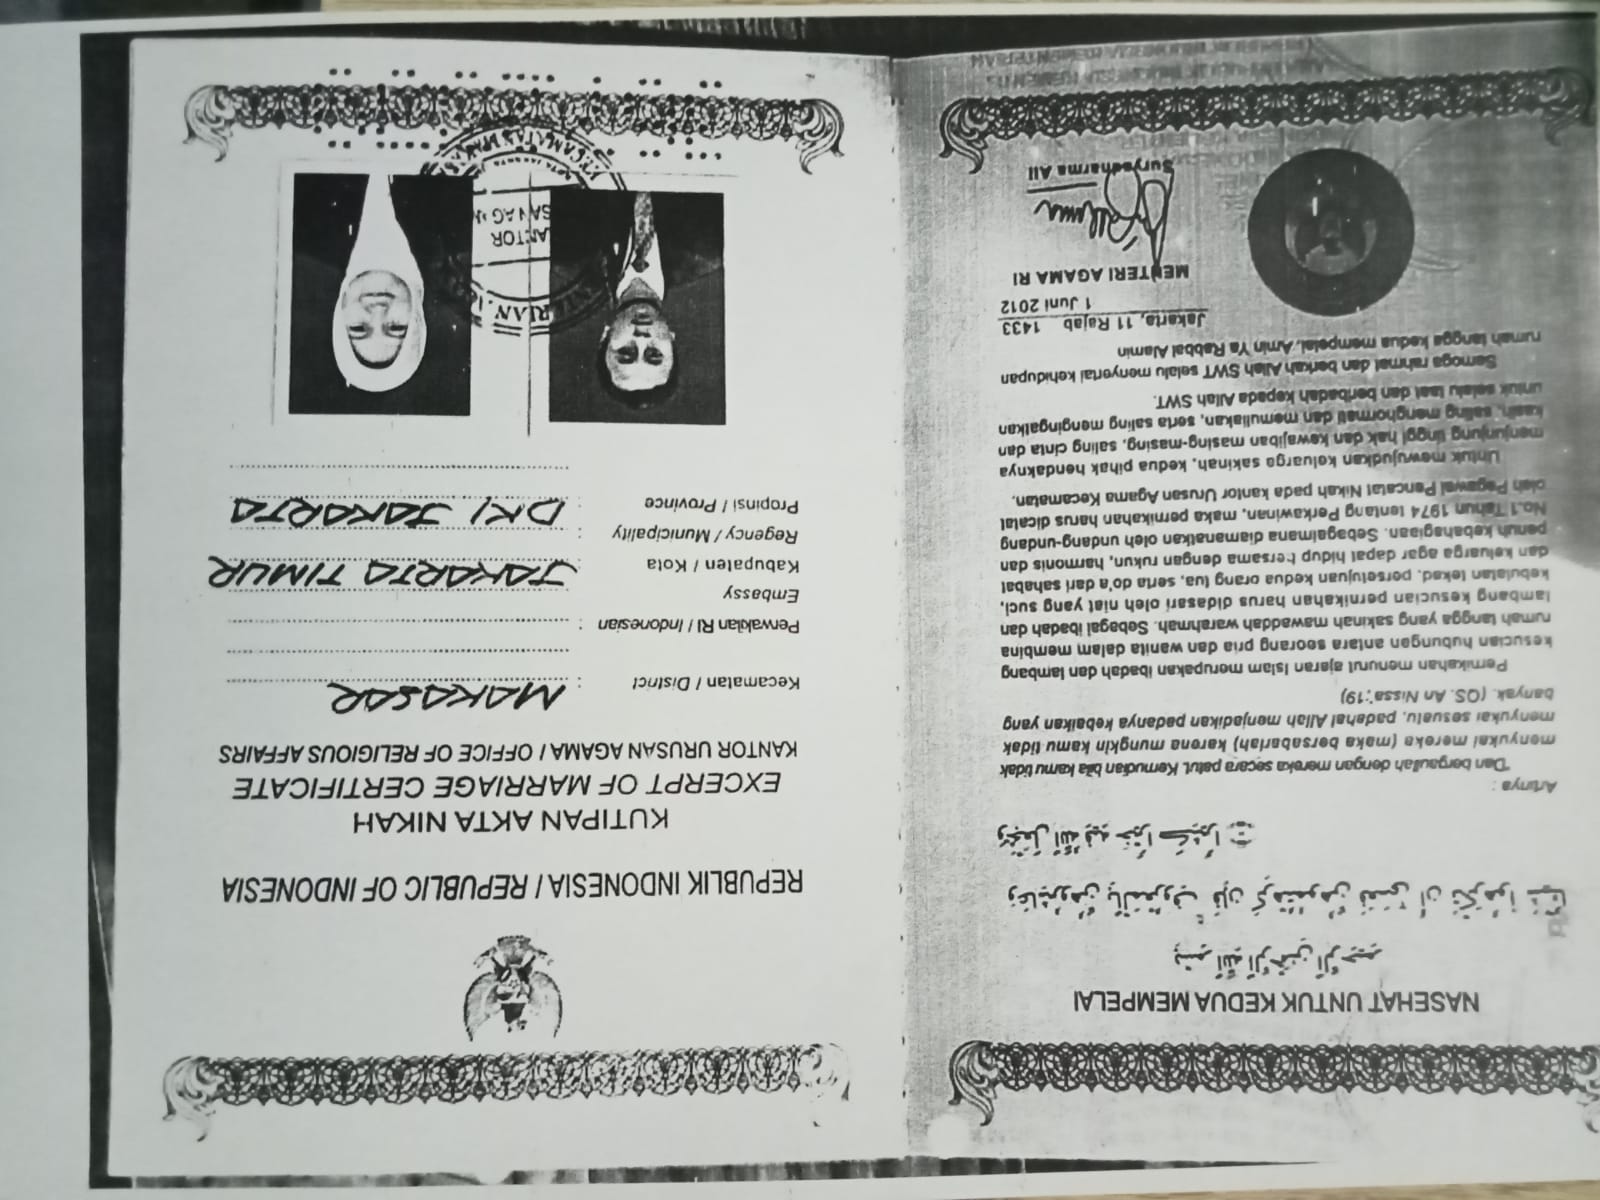 NASEHAT UNTUK KEDUA MEMPELAI
بِسْمِ ٱللَّهِ ٱلرَّحْمَٰنِ ٱلرَّحِيمِ
وَعَاشِرُوهُنَّ بِٱلْمَعْرُوفِ ۚ فَإِن كَرِهْتُمُوهُنَّ فَعَسَىٰٓ أَن تَكْرَهُوا۟ شَيْـًٔا
وَيَجْعَلَ ٱللَّهُ فِيهِ خَيْرًا كَثِيرًا
Artinya :
"Dan bergaullah dengan mereka secara patut. Kemudian bila kamu tidak
menyukai mereka (maka bersabarlah) karena mungkin kamu tidak
menyukai sesuatu, padahal Allah menjadikan padanya kebaikan yang
banyak. (QS. An Nissa';19)
Pernikahan menurut ajaran Islam merupakan ibadah dan lambang
kesucian hubungan antara seorang pria dan wanita dalam membina
rumah tangga yang sakinah mawaddah warahmah. Sebagai ibadah dan
lambang kesucian pernikahan harus didasari oleh niat yang suci,
kebulatan tekad, persetujuan kedua orang tua, serta do'a dari sahabat
dan keluarga agar dapat hidup bersama dengan rukun, harmonis dan
penuh kebahagiaan. Sebagaimana diamanatkan oleh undang-undang
No.1 Tahun 1974 tentang Perkawinan, maka pernikahan harus dicatat
oleh Pegawai Pencatat Nikah pada kantor Urusan Agama Kecamatan.
Untuk mewujudkan keluarga sakinah, kedua pihak hendaknya
menjunjung tinggi hak dan kewajiban masing-masing, saling cinta dan
kasih, saling menghormati dan memuliakan, serta saling mengingatkan
untuk selalu taat dan beribadah kepada Allah SWT.
Semoga rahmat dan berkah Allah SWT selalu menyertai kehidupan
rumah tangga kedua mempelai. Amin Ya Rabbal Alamin
Jakarta, 11 Rajab 1433
1 Juni 2012
MENTERI AGAMA RI
Suryadharma Ali
REPUBLIK INDONESIA / REPUBLIC OF INDONESIA
KUTIPAN AKTA NIKAH
EXCERPT OF MARRIAGE CERTIFICATE
KANTOR URUSAN AGAMA / OFFICE OF RELIGIOUS AFFAIRS
Kecamatan / District : MAKASAR
Perwakilan RI / Indonesian :
Embassy
Kabupaten / Kota : JAKARTA TIMUR
Regency / Municipality :
Propinsi / Province : DKI JAKARTA